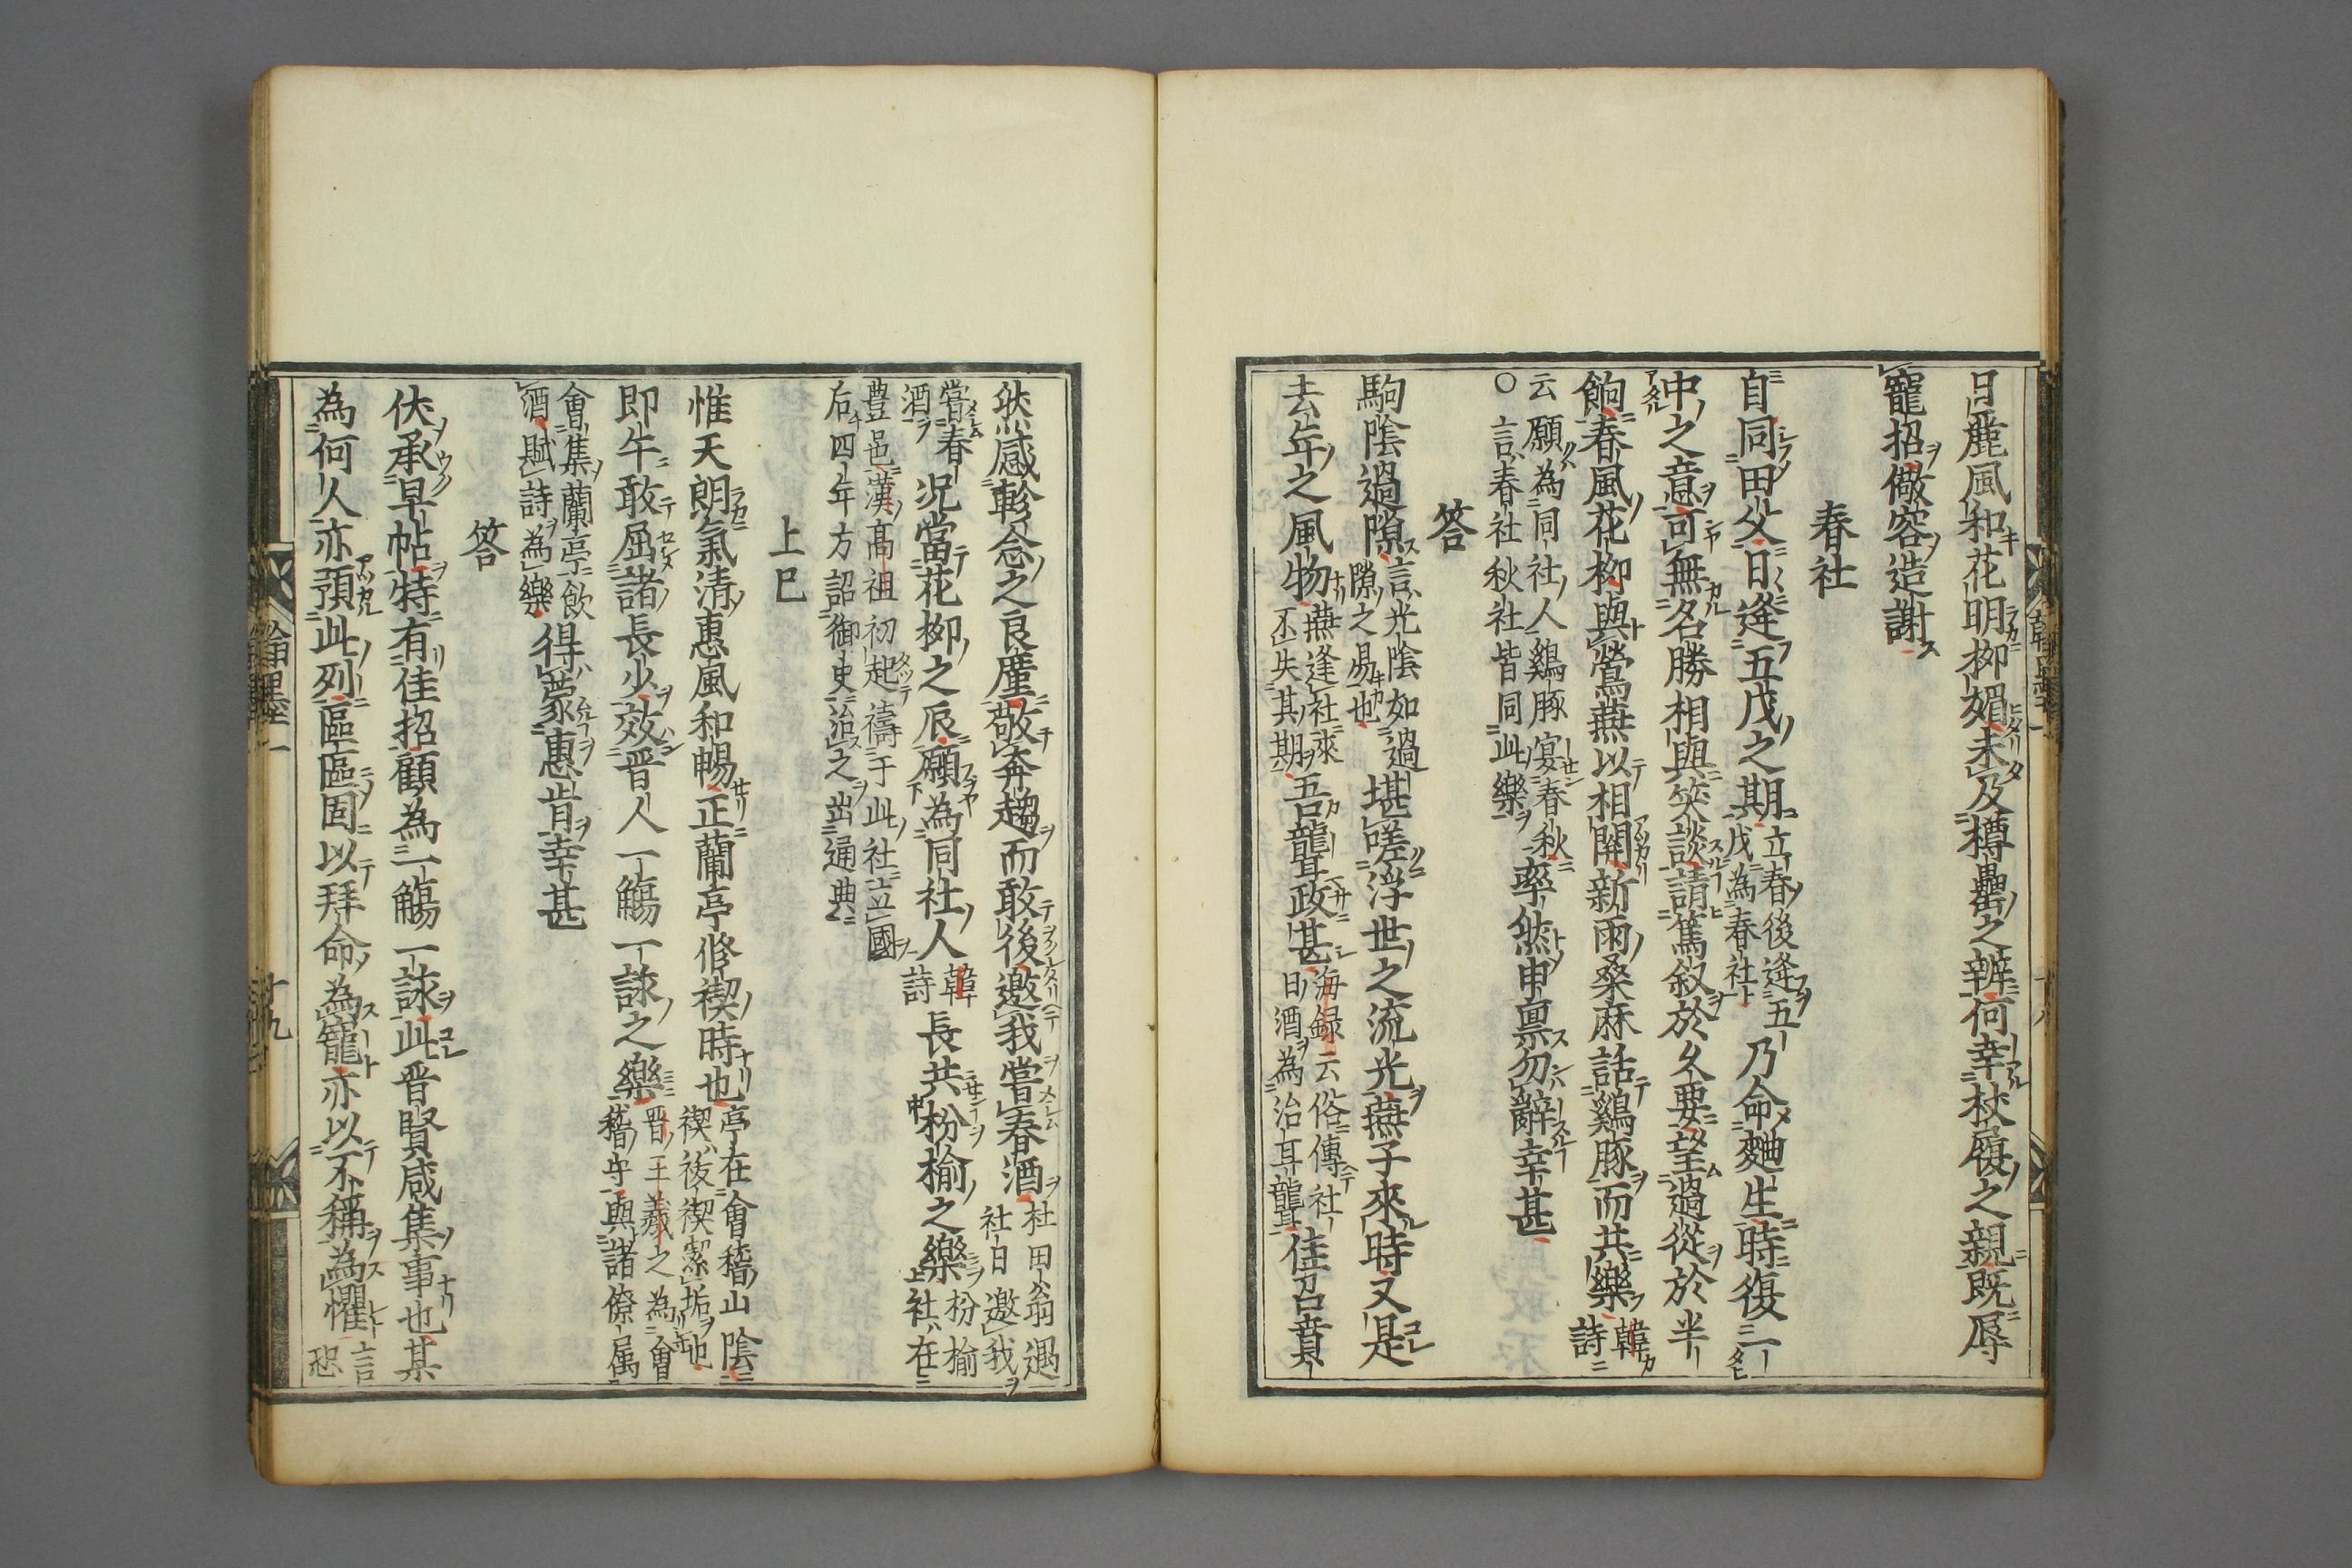 日麗風和花明栁媚未及樽罍之辨何幸杖履之親既辱
寵招儆容造謝
春社
自同田父日逢五戊之期立春後逢五戊為春社乃命麯生時復一
中之意可無名勝相與笑談請篤叙於久要望過從於半
餉春風花栁與鶯燕以相関新雨桑麻話鷄豚而共樂韓詩
云願為同社人鷄豚宴春秋率然申禀勿辭幸甚
○言春社秋社皆同此樂
答
駒陰過隙言光陰如過隙之易也堪嗟浮世之流光燕子來時又是
去年之風物燕逢社來不失其期吾聾政甚海録云俗傳社日酒為治耳聾佳召賁
然感軫念之良廑敬奔趨而敢後邀我嘗春酒杜田翁遇社日邀我
嘗春酒况當花栁之辰願為同社人韓詩長共枌榆之樂枌榆社在
豊邑漢高祖初起禱于此社立國
后四年方詔御史治之出通典
上巳
惟天朗氣清惠風和暢正蘭亭修禊時也亭在會稽山陰禊祓禊潔垢也
即午敢屈諸長少效晋人一觴一詠之樂晋王羲之為會稽守與諸僚属
會集蘭亭飲酒賦詩為樂得蒙惠肯幸甚
答
伏承早帖特有佳招顧為一觴一詠此晋賢咸集事也某
為何人亦預此列區區固以拜命為寵亦以不稱為懼言恐
翰墨一
十九